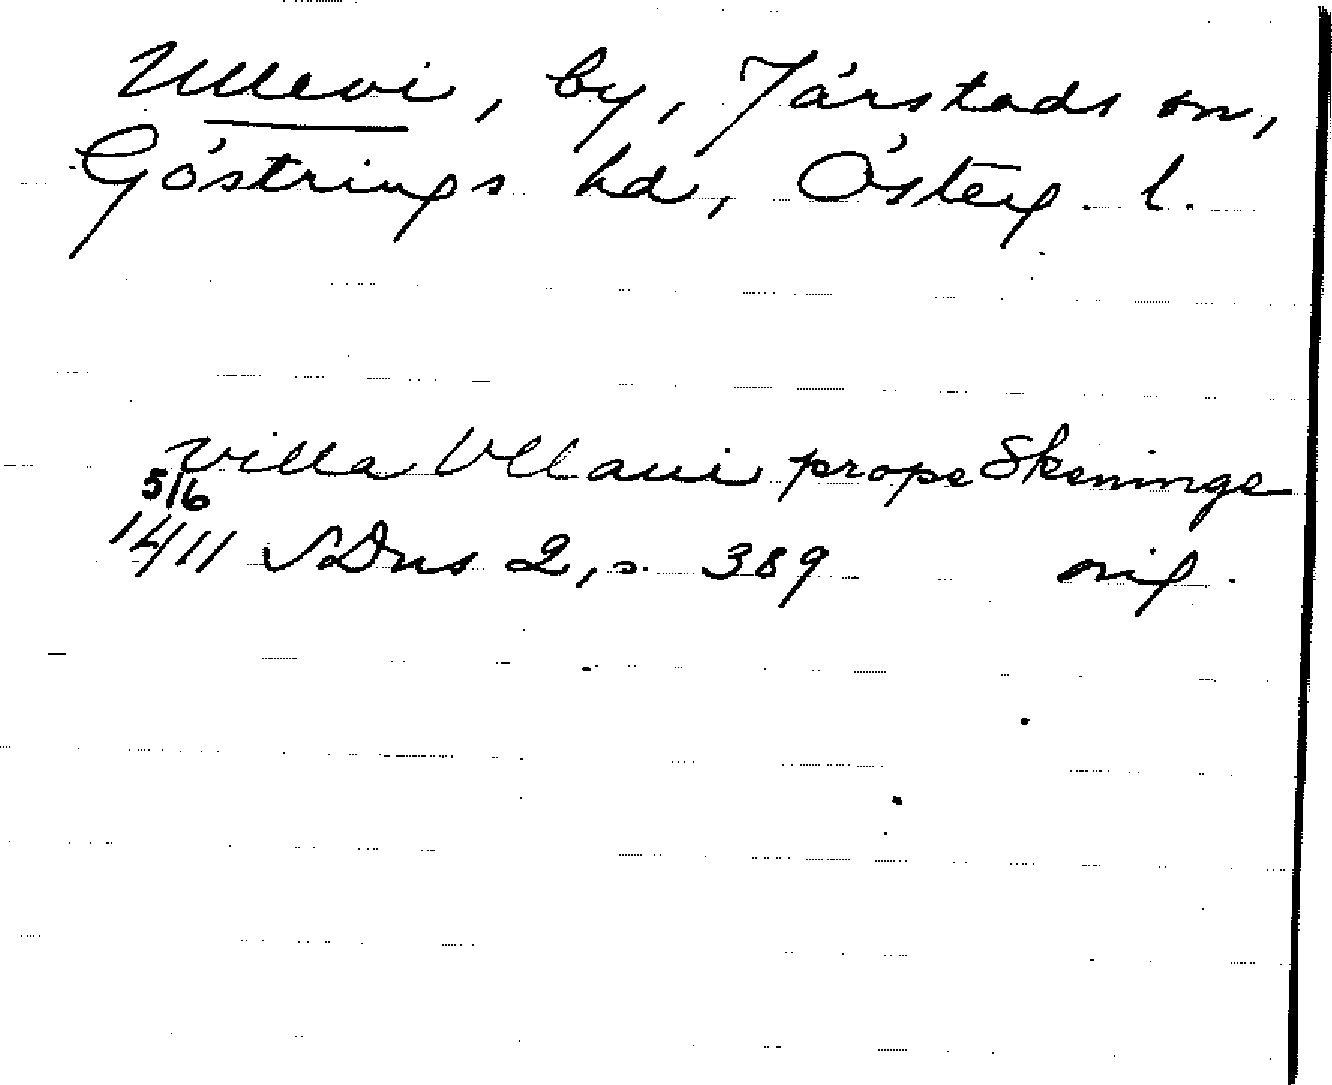 Ullevi, by, Järstads sn,
Göstrings hd, Österg. l.
villa Vllaui prope Skeninge
5/6
1411 SDns 2, s. 389 orig.